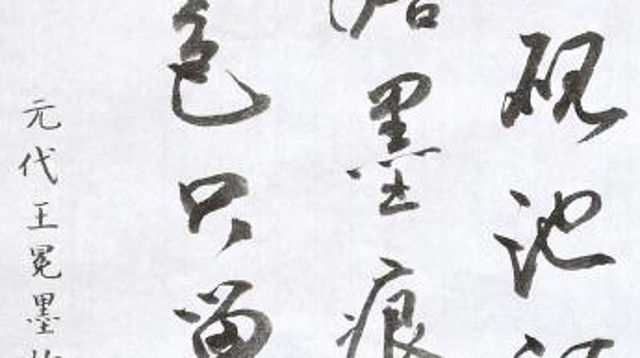 砚池
墨痕
色只留
元代王冕墨